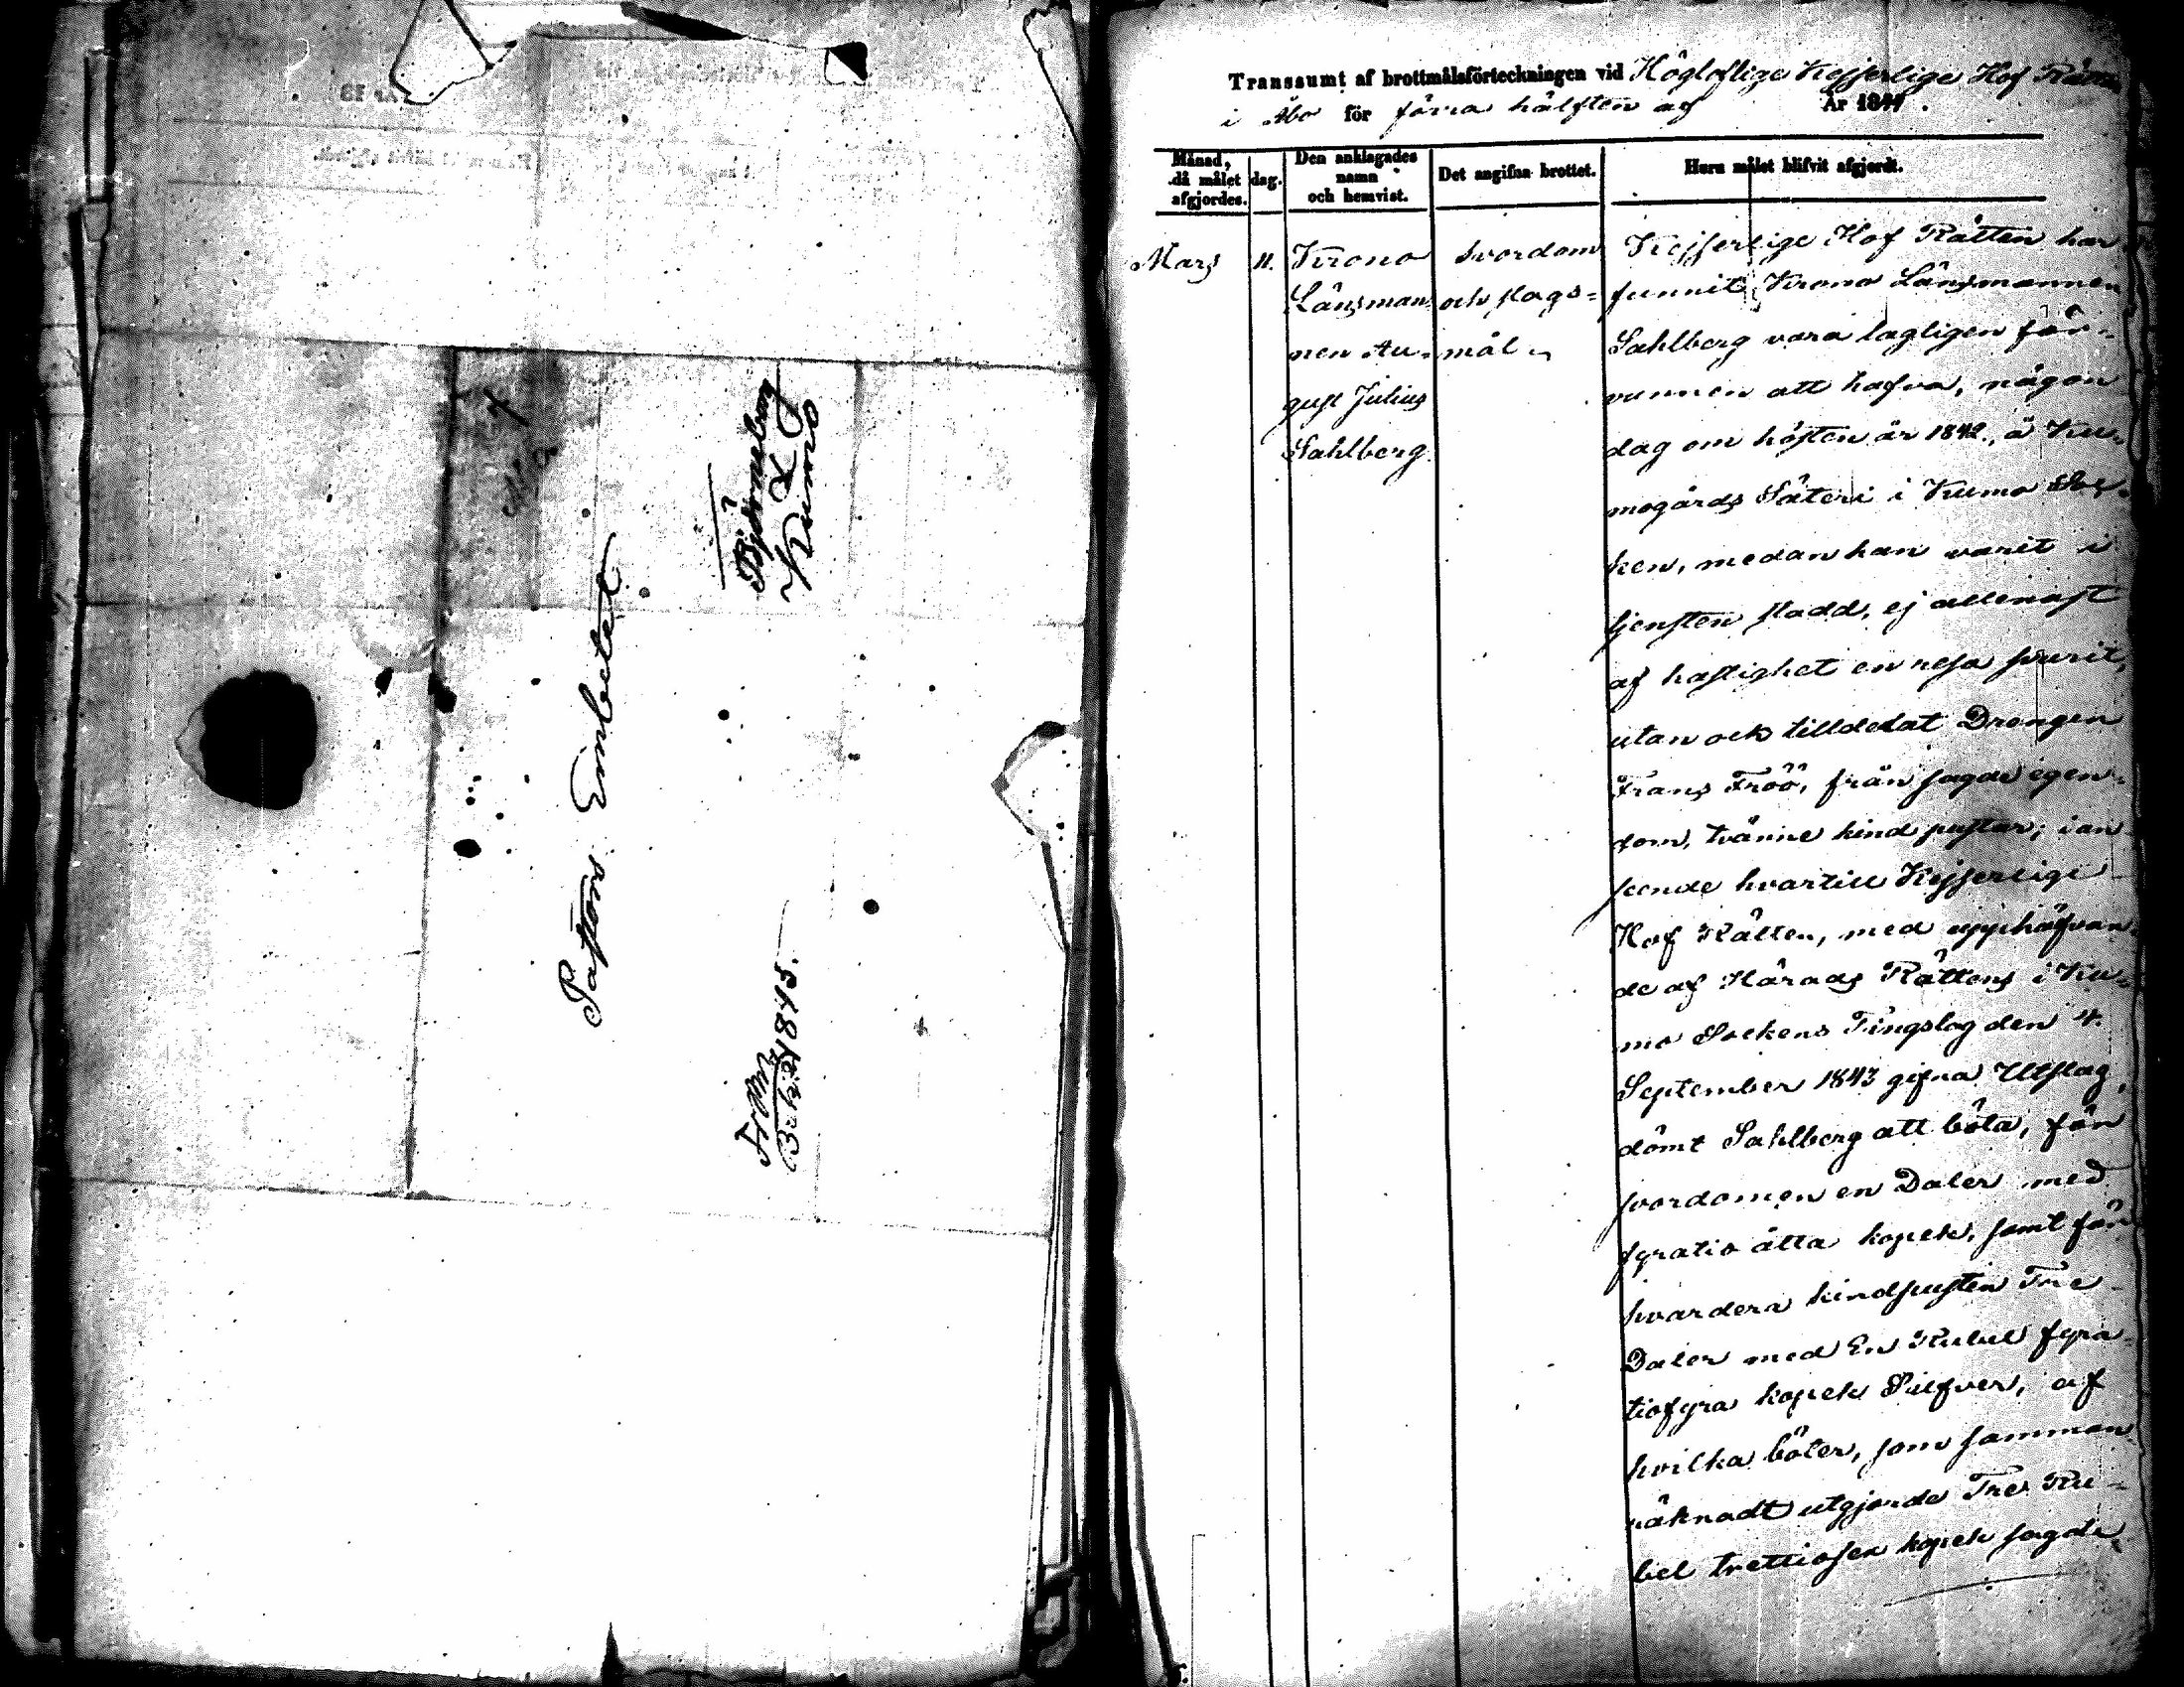 Pastors Embetet
Björneborg
&
Kumo
Fr M
1845.
Transsumt af brottmålsförteckningen vid Högloflige Kejserlige Hof Rätten
i Åbo för förra hälften af År 1844.
Månad, då målet afgjordes.
dag.
Den anklagades namn och hemvist.
Det angifna brottet.
Huru målet blifvit afgjordt.
Mars
11.
Krono
Länsman-
nen Au-
gust Julius
Sahlberg.
Svordom
och slags-
mål.
Kejserlige Hof Rätten har
funnit Krono Länsmannen
Sahlberg vara lagligen för-
vunnen att hafva, någon
dag om hösten år 1842., å Ku-
mogårds Säteri i Kumo Soc-
ken, medan han varit i
tjensten stadd, ej allenast
af hastighet en resa svurit,
utan ock tilldelat Drengen
Frans Fröö, från sagde egen-
dom, tvänne kind pustar; i an-
seende hvartill Kejserlige
Hof Rätten, med upphäfvan-
de af Härads Rättens i Ku-
mo Sockens Tingslag den 4.
September 1843 gifna Utslag,
dömt Sahlberg att böta, för
svordomen en Daler med
fyratio åtta kopek, samt för
hvardera kindpusten Tre
Daler med En Rubel fyra-
tiofyra kopek Silfver, af
hvilka böter, som samman-
räknadt utgjorde Tre Ru-
bel trettiosex kopek sagde